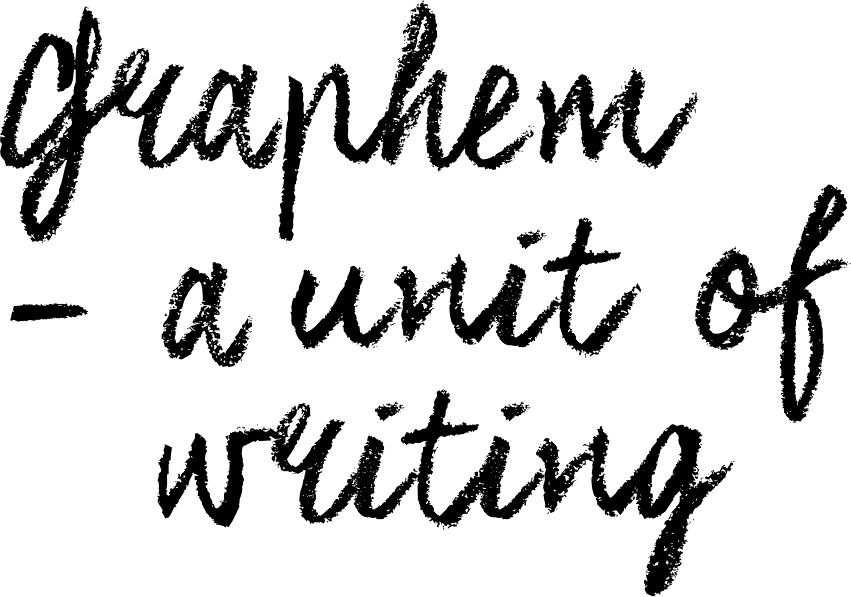 graphem
- a unit of
writing